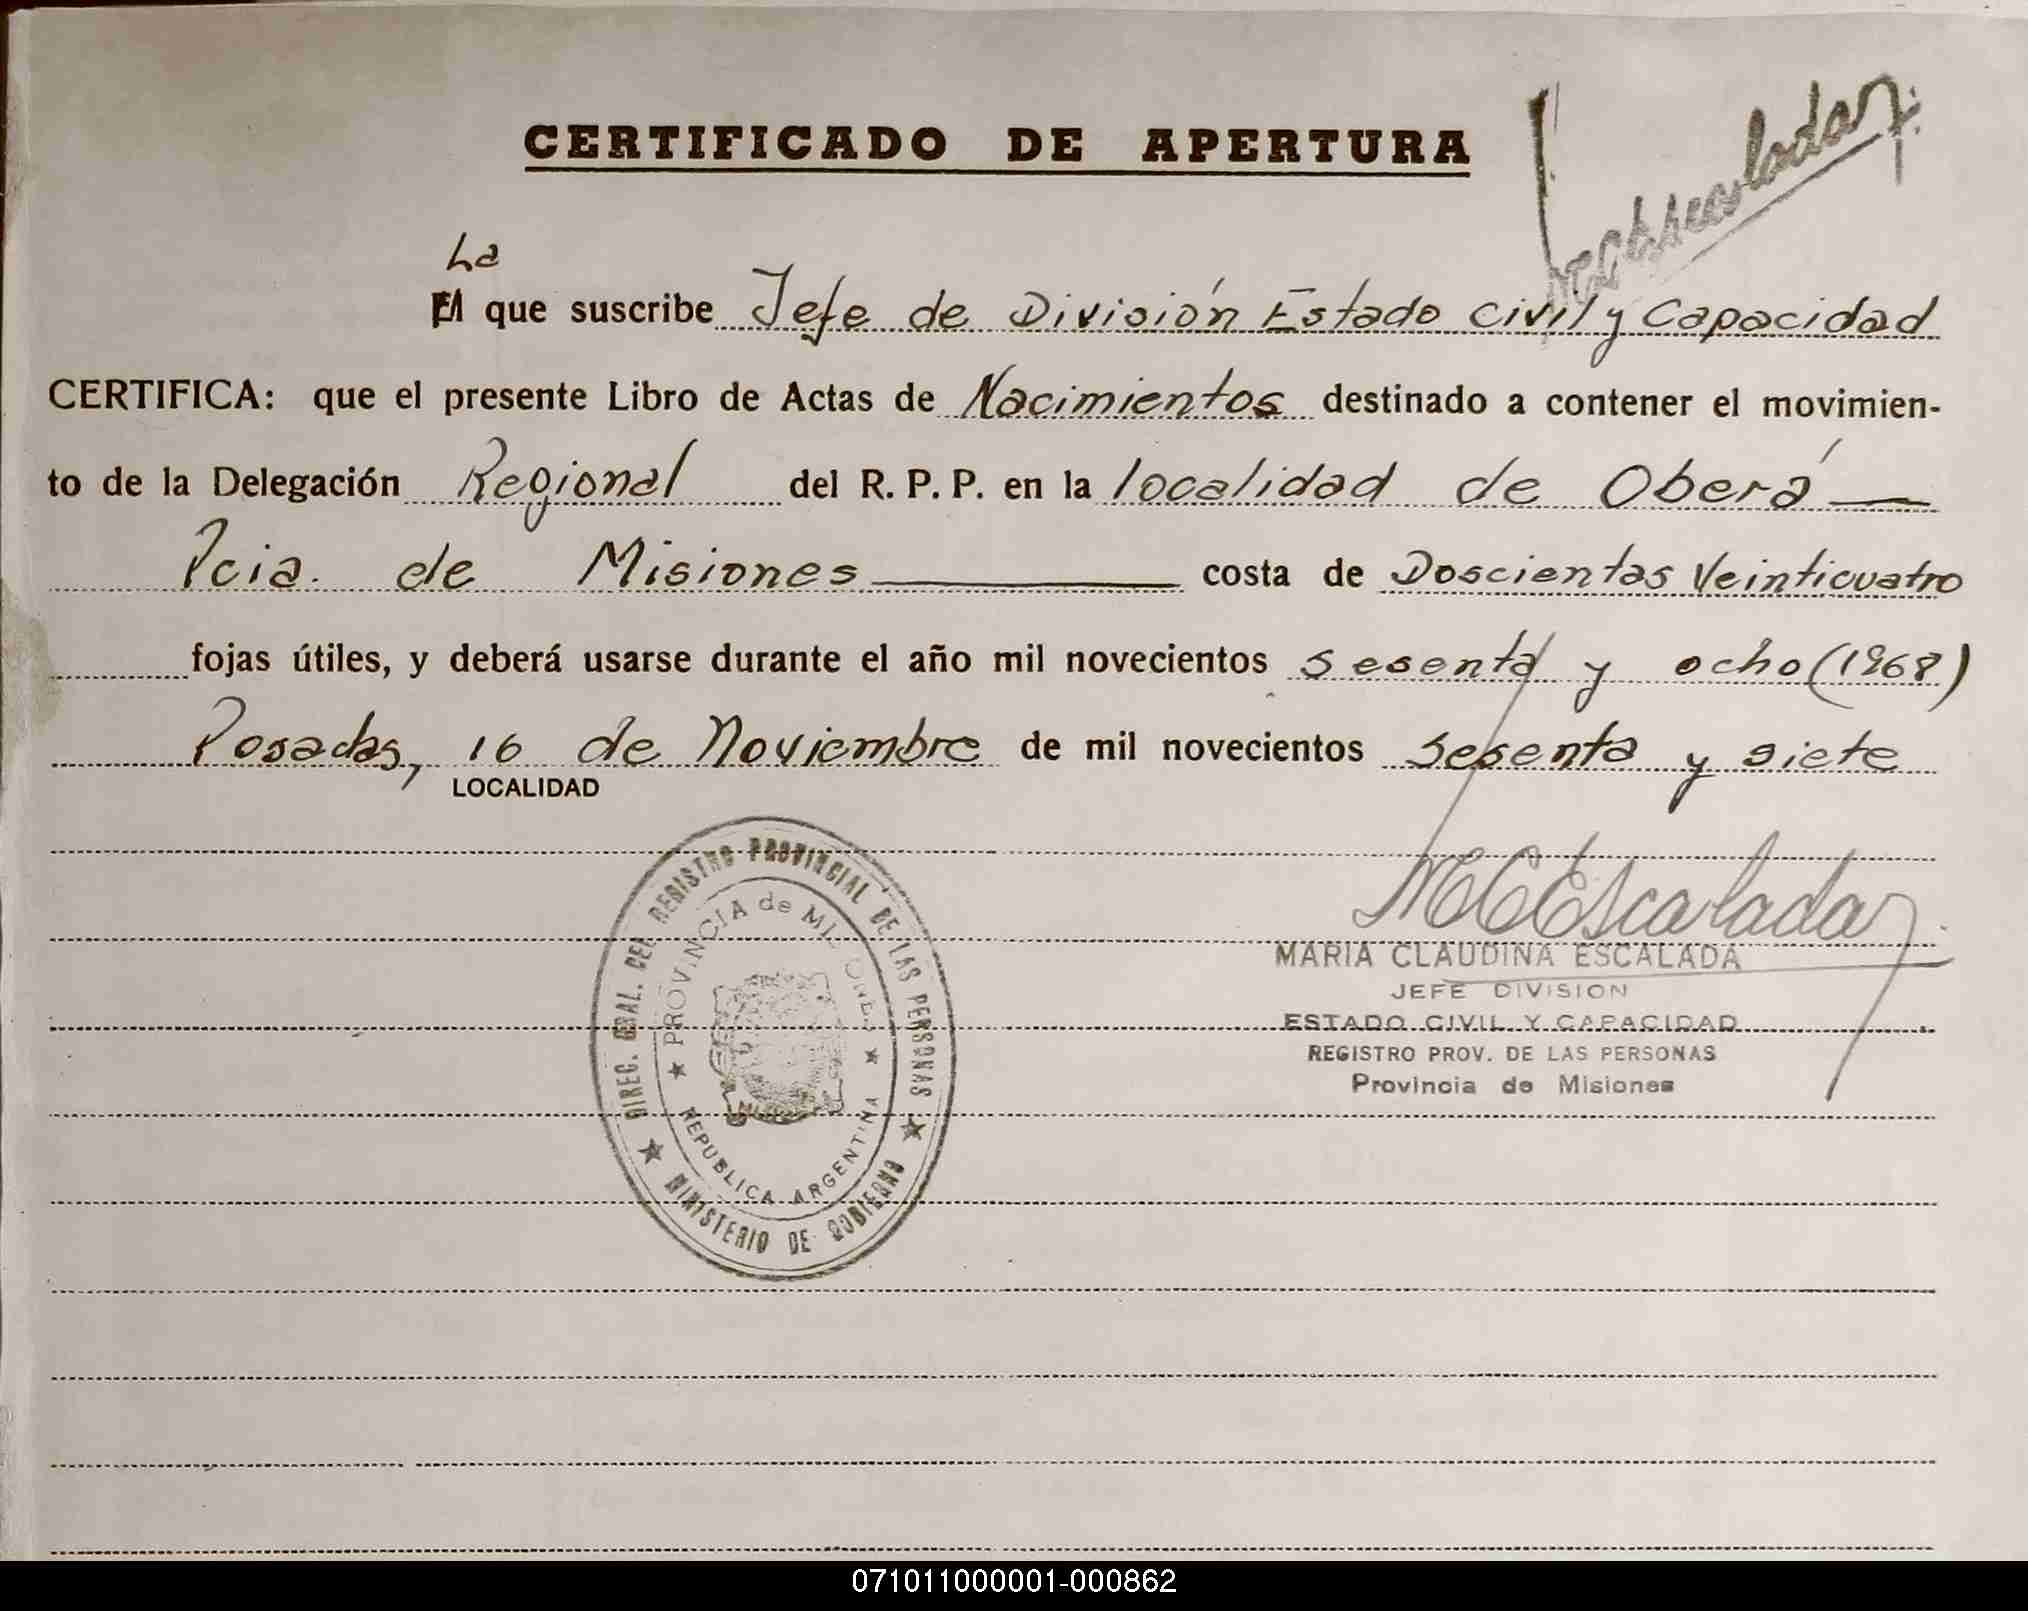 CERTIFICADO DE APERTURA
MCEscalada
La
El que suscribe Jefe de División Estado Civil y Capacidad
CERTIFICA: que el presente Libro de Actas de Nacimientos destinado a contener el movimien-
to de la Delegación Regional del R. P. P. en la localidad de Oberá
Pcia. de Misiones costa de Doscientas Veinticuatro
fojas útiles, y deberá usarse durante el año mil novecientos sesenta y ocho (1968)
Posadas, 16 de Noviembre de mil novecientos sesenta y siete
LOCALIDAD
DIREC. GRAL. DEL REGISTRO PROVINCIAL DE LAS PERSONAS
PROVINCIA de MISIONES
REPUBLICA ARGENTINA
MINISTERIO DE GOBIERNO
MCEscalada
MARIA CLAUDINA ESCALADA
JEFE DIVISION
ESTADO CIVIL Y CAPACIDAD
REGISTRO PROV. DE LAS PERSONAS
Provincia de Misiones
071011000001-000862